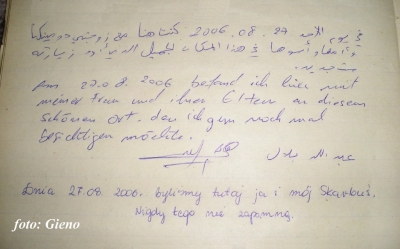 في يوم الأحد 27 .08 .2006 كنا هنا مع زوجتي دومينيكا
في هذا المكان الجميل الذي أود زيارته
من جديد.
Am 27.08.2006 befand ich hier mit
meiner Frau und ihren Eltern an diesem
schönen Ort. den ich gern noch mal
besichtigen möchte.
Dnia 27.08.2006. byliśmy tutaj ja i mój Skarbuś.
Nigdy tego nie zapomnę.
foto: Gieno